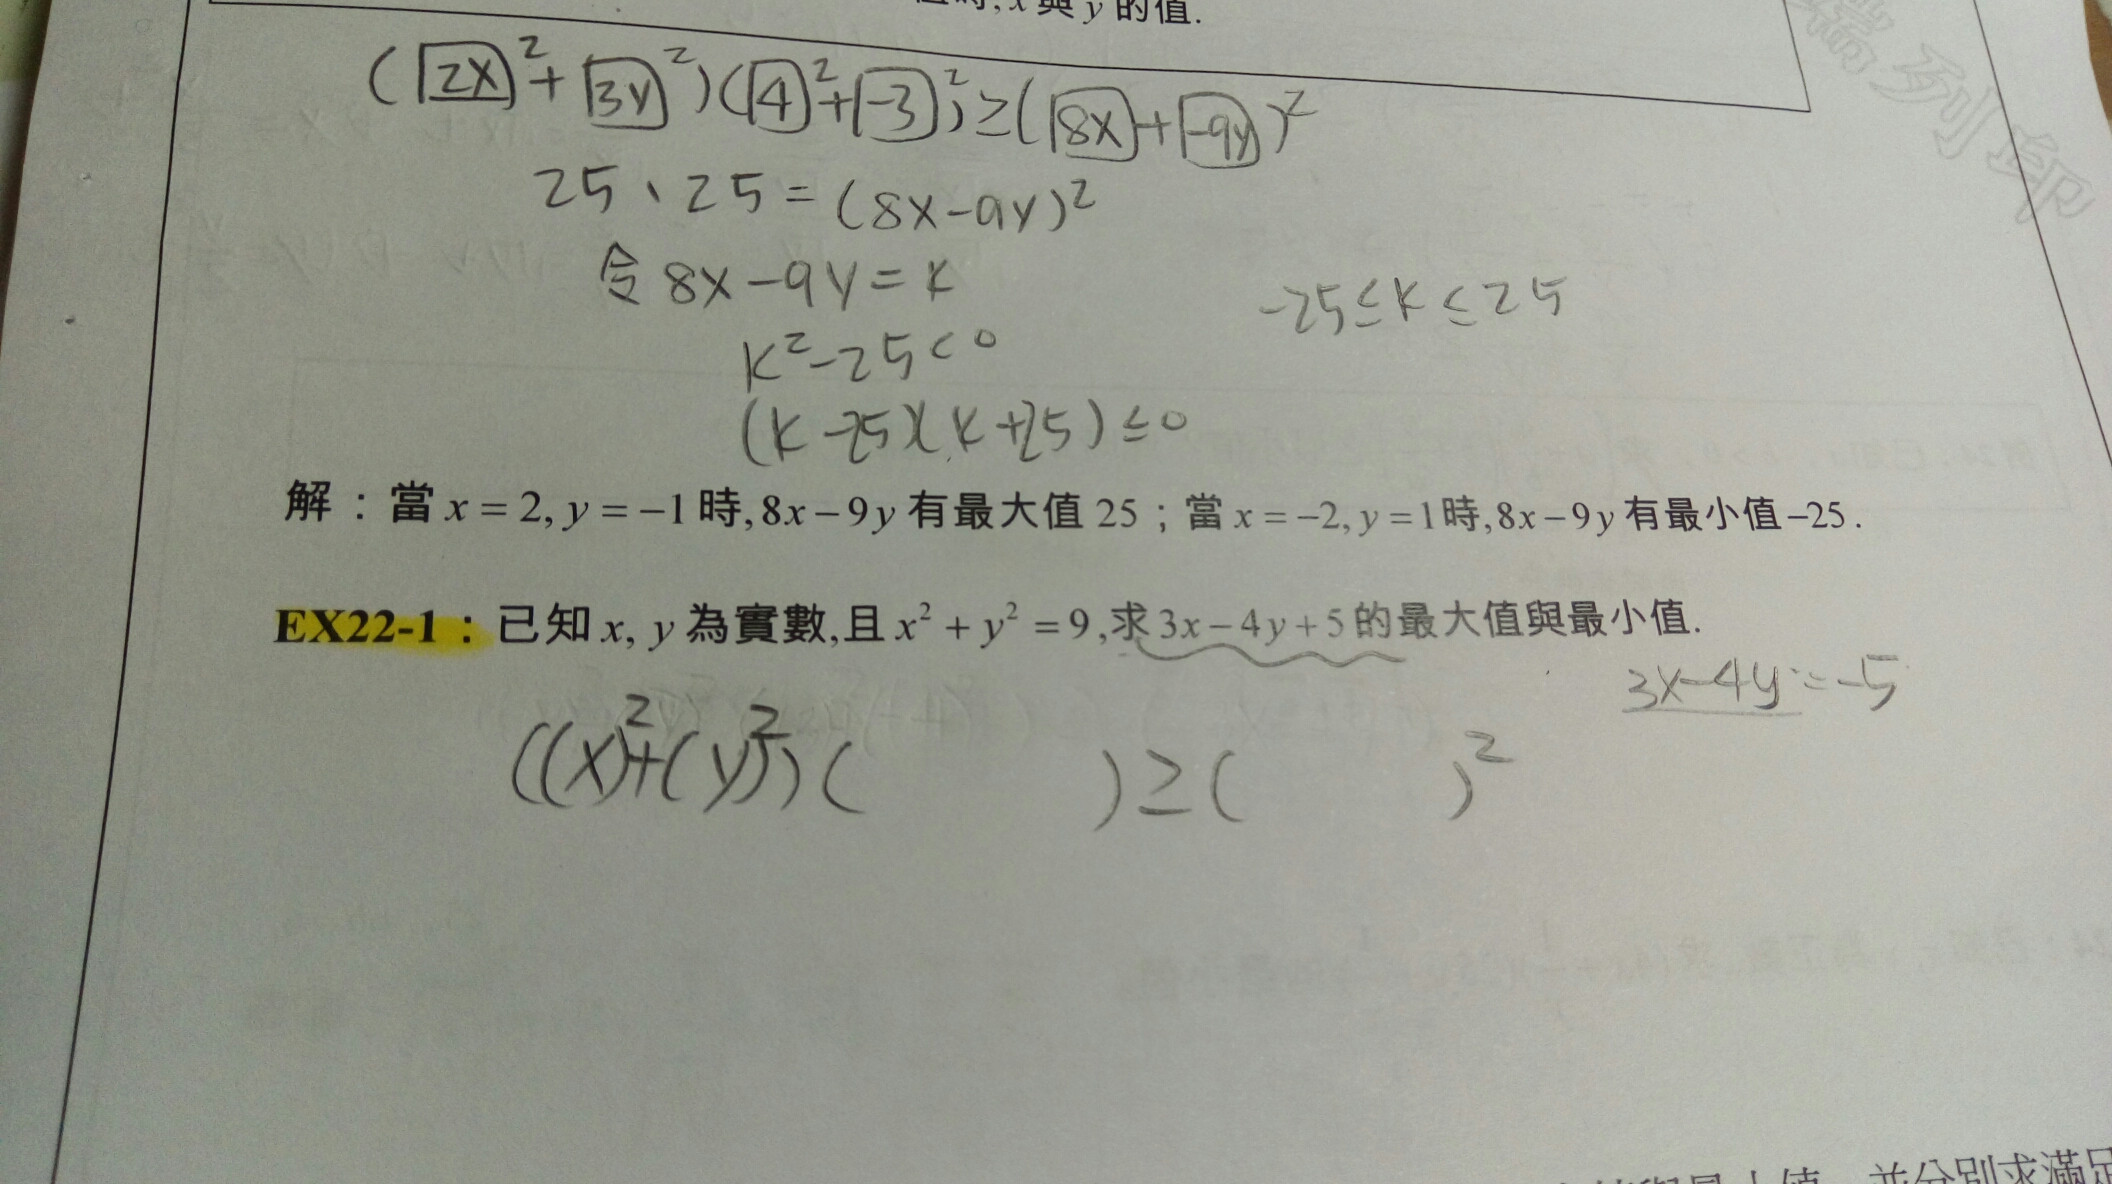 值時, x 與 y 的值.
(2x² + 3y²)(4² + -3²) ≥ (8x + -9y)²
25 、 25 = (8x-9y)²
令 8x-9y = k
-25 ≤ k ≤ 25
k²-25 < 0
(k-25)(k+25) ≤ 0
解：當 x = 2, y = −1 時, 8x − 9y 有最大值 25；當 x = −2, y = 1 時, 8x − 9y 有最小值 −25.
EX22-1：已知 x, y 為實數, 且 x² + y² = 9, 求 3x − 4y + 5 的最大值與最小值.
3x-4y = -5
((x)²+(y)²)( ) ≥ ( )²
瑞列印
並分別求滿足